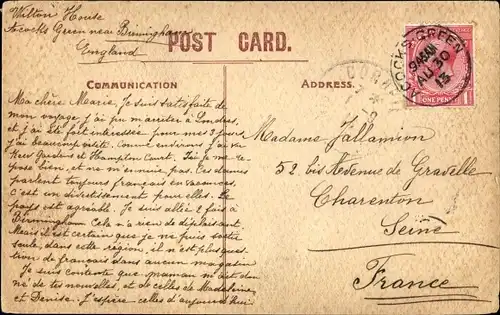 Wilton House
Acocks Green near Birmingham
England
POST CARD.
COMMUNICATION
ADDRESS.
ACOCKS-GREEN
945AM
AU 30
13
ONE PENNY
Ma chère Marie, Je suis satisfaite de
mon voyage, j'ai pu m'arrêter à Londres,
et j'ai été fort intéressée pour mes 3 jours
j'ai beaucoup visité. Comme environs j'ai vu
Kew Gardens et Hampton Court. Ici je me re-
pose bien, et ne m'ennuie pas. Ces dames
parlent toujours français en vacances,
c'est un divertissement pour elles. Le
pays est agréable. Je suis allée 2 fois à
Birmingham. Cela n'a rien de déplaisant
Mais il est certain que je ne puis sortir
seule, dans cette région, il n'est plus ques-
tion de français dans aucun magasin
Je suis contente que maman m'ait don-
né de tes nouvelles, et de celles de Madeleine
et Denise. J'espère celles d'aujourd'hui
Madame Jallamion
52 bis Avenue de Gravelle
Charenton
Seine
France